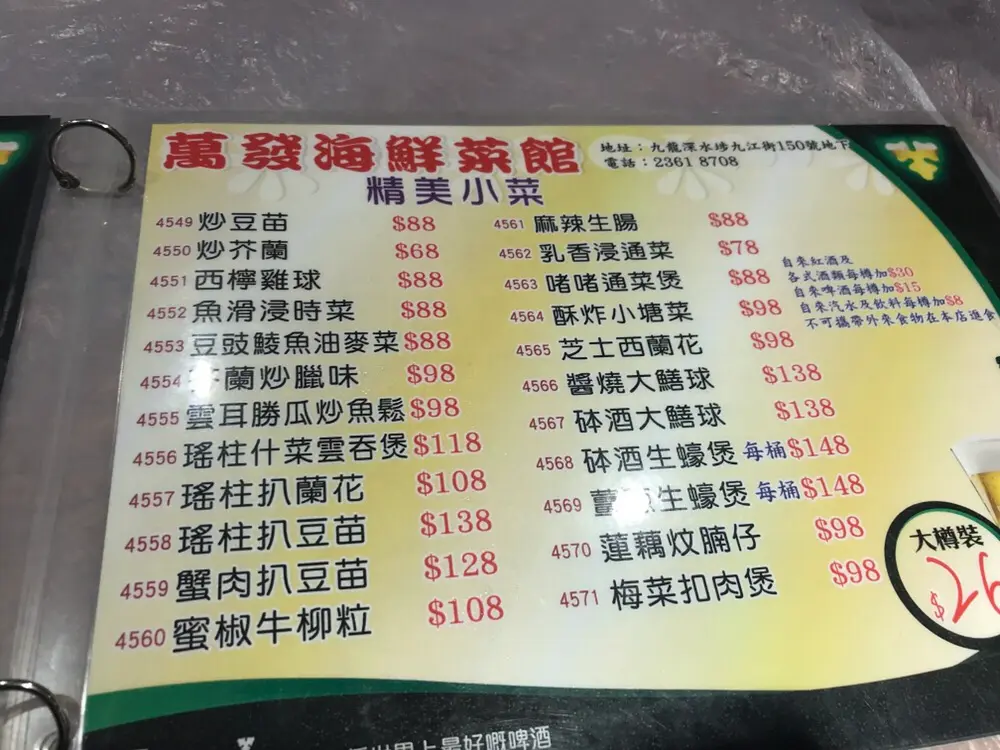 萬發海鮮菜館
地址：九龍深水埗九江街150號地下
電話：2361 8708
精美小菜
4549 炒豆苗 $88
4550 炒芥蘭 $68
4551 西檸雞球 $88
4552 魚滑浸時菜 $88
4553 豆豉鯪魚油麥菜 $88
4554 芥蘭炒臘味 $98
4555 雲耳勝瓜炒魚鬆 $98
4556 瑤柱什菜雲吞煲 $118
4557 瑤柱扒蘭花 $108
4558 瑤柱扒豆苗 $138
4559 蟹肉扒豆苗 $128
4560 蜜椒牛柳粒 $108
4561 麻辣生腸 $88
4562 乳香浸通菜 $78
4563 啫啫通菜煲 $88
4564 酥炸小塘菜 $98
4565 芝士西蘭花 $98
4566 醬燒大鱔球 $138
4567 砵酒大鱔球 $138
4568 砵酒生蠔煲 每桶 $148
4569 薑蔥生蠔煲 每桶 $148
4570 蓮藕炆腩仔 $98
4571 梅菜扣肉煲 $98
自來紅酒及
各式酒類每樽加$30
自來啤酒每樽加$15
自來汽水及飲料每樽加$8
不可攜帶外來食物在本店進食
大樽裝
$
上最好嘅啤酒